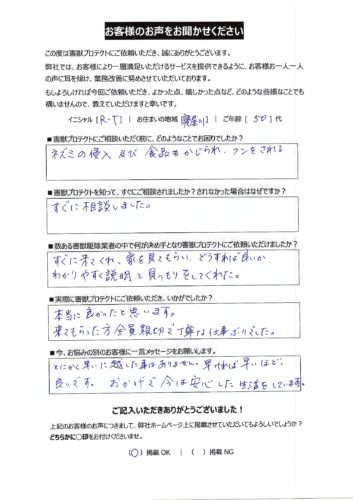 お客様のお声をお聞かせください
この度は害獣プロテクトにご依頼いただき、誠にありがとうございます。
弊社では、お客様により一層満足いただけるサービスを提供できるように、お客様お一人一人
の声に耳を傾け、業務改善に努めさせていただいております。
もしよろしければ今回ご依頼いただき、よかった点、嬉しかった点など、どのような些細なことでも
構いませんので、教えていただけますと幸いです。
イニシャル [ R・T ] | お住まいの地域 [寝屋川] | ご年齢 [ 50 ] 代
■害獣プロテクトにご相談いただく前に、どのようなことでお困りでしたか?
ネズミの侵入及び食品をかじられ、フンをされる
■害獣プロテクトを知って、すぐにご相談されましたか?されなかった場合はなぜですか?
すぐに相談しました。
■数ある害獣駆除業者の中で何が決め手となり害獣プロテクトにご依頼いただけましたか?
すぐに来てくれ、家を見てもらい、どうすれば良いか
わかりやすく説明と見つもりをしてくれた。
■実際に害獣プロテクトにご依頼いただき、いかがでしたか?
本当に良かったと思います。
来てもらった方全員親切で丁寧な仕事ぶりでした。
■今、お悩みの別のお客様に一言メッセージをお願いします。
とにかく早いに越した事はありません。早ければ早いほど、
良いです。おかげで今は安心した生活をしています。
ご記入いただきありがとうございました!
上記のお客様のお声につきまして、弊社ホームページ上に掲載させていただいてもよろしいでしょうか?
どちらかに○印をお付けくださいませ。
(○) 掲載 OK | ( ) 掲載 NG